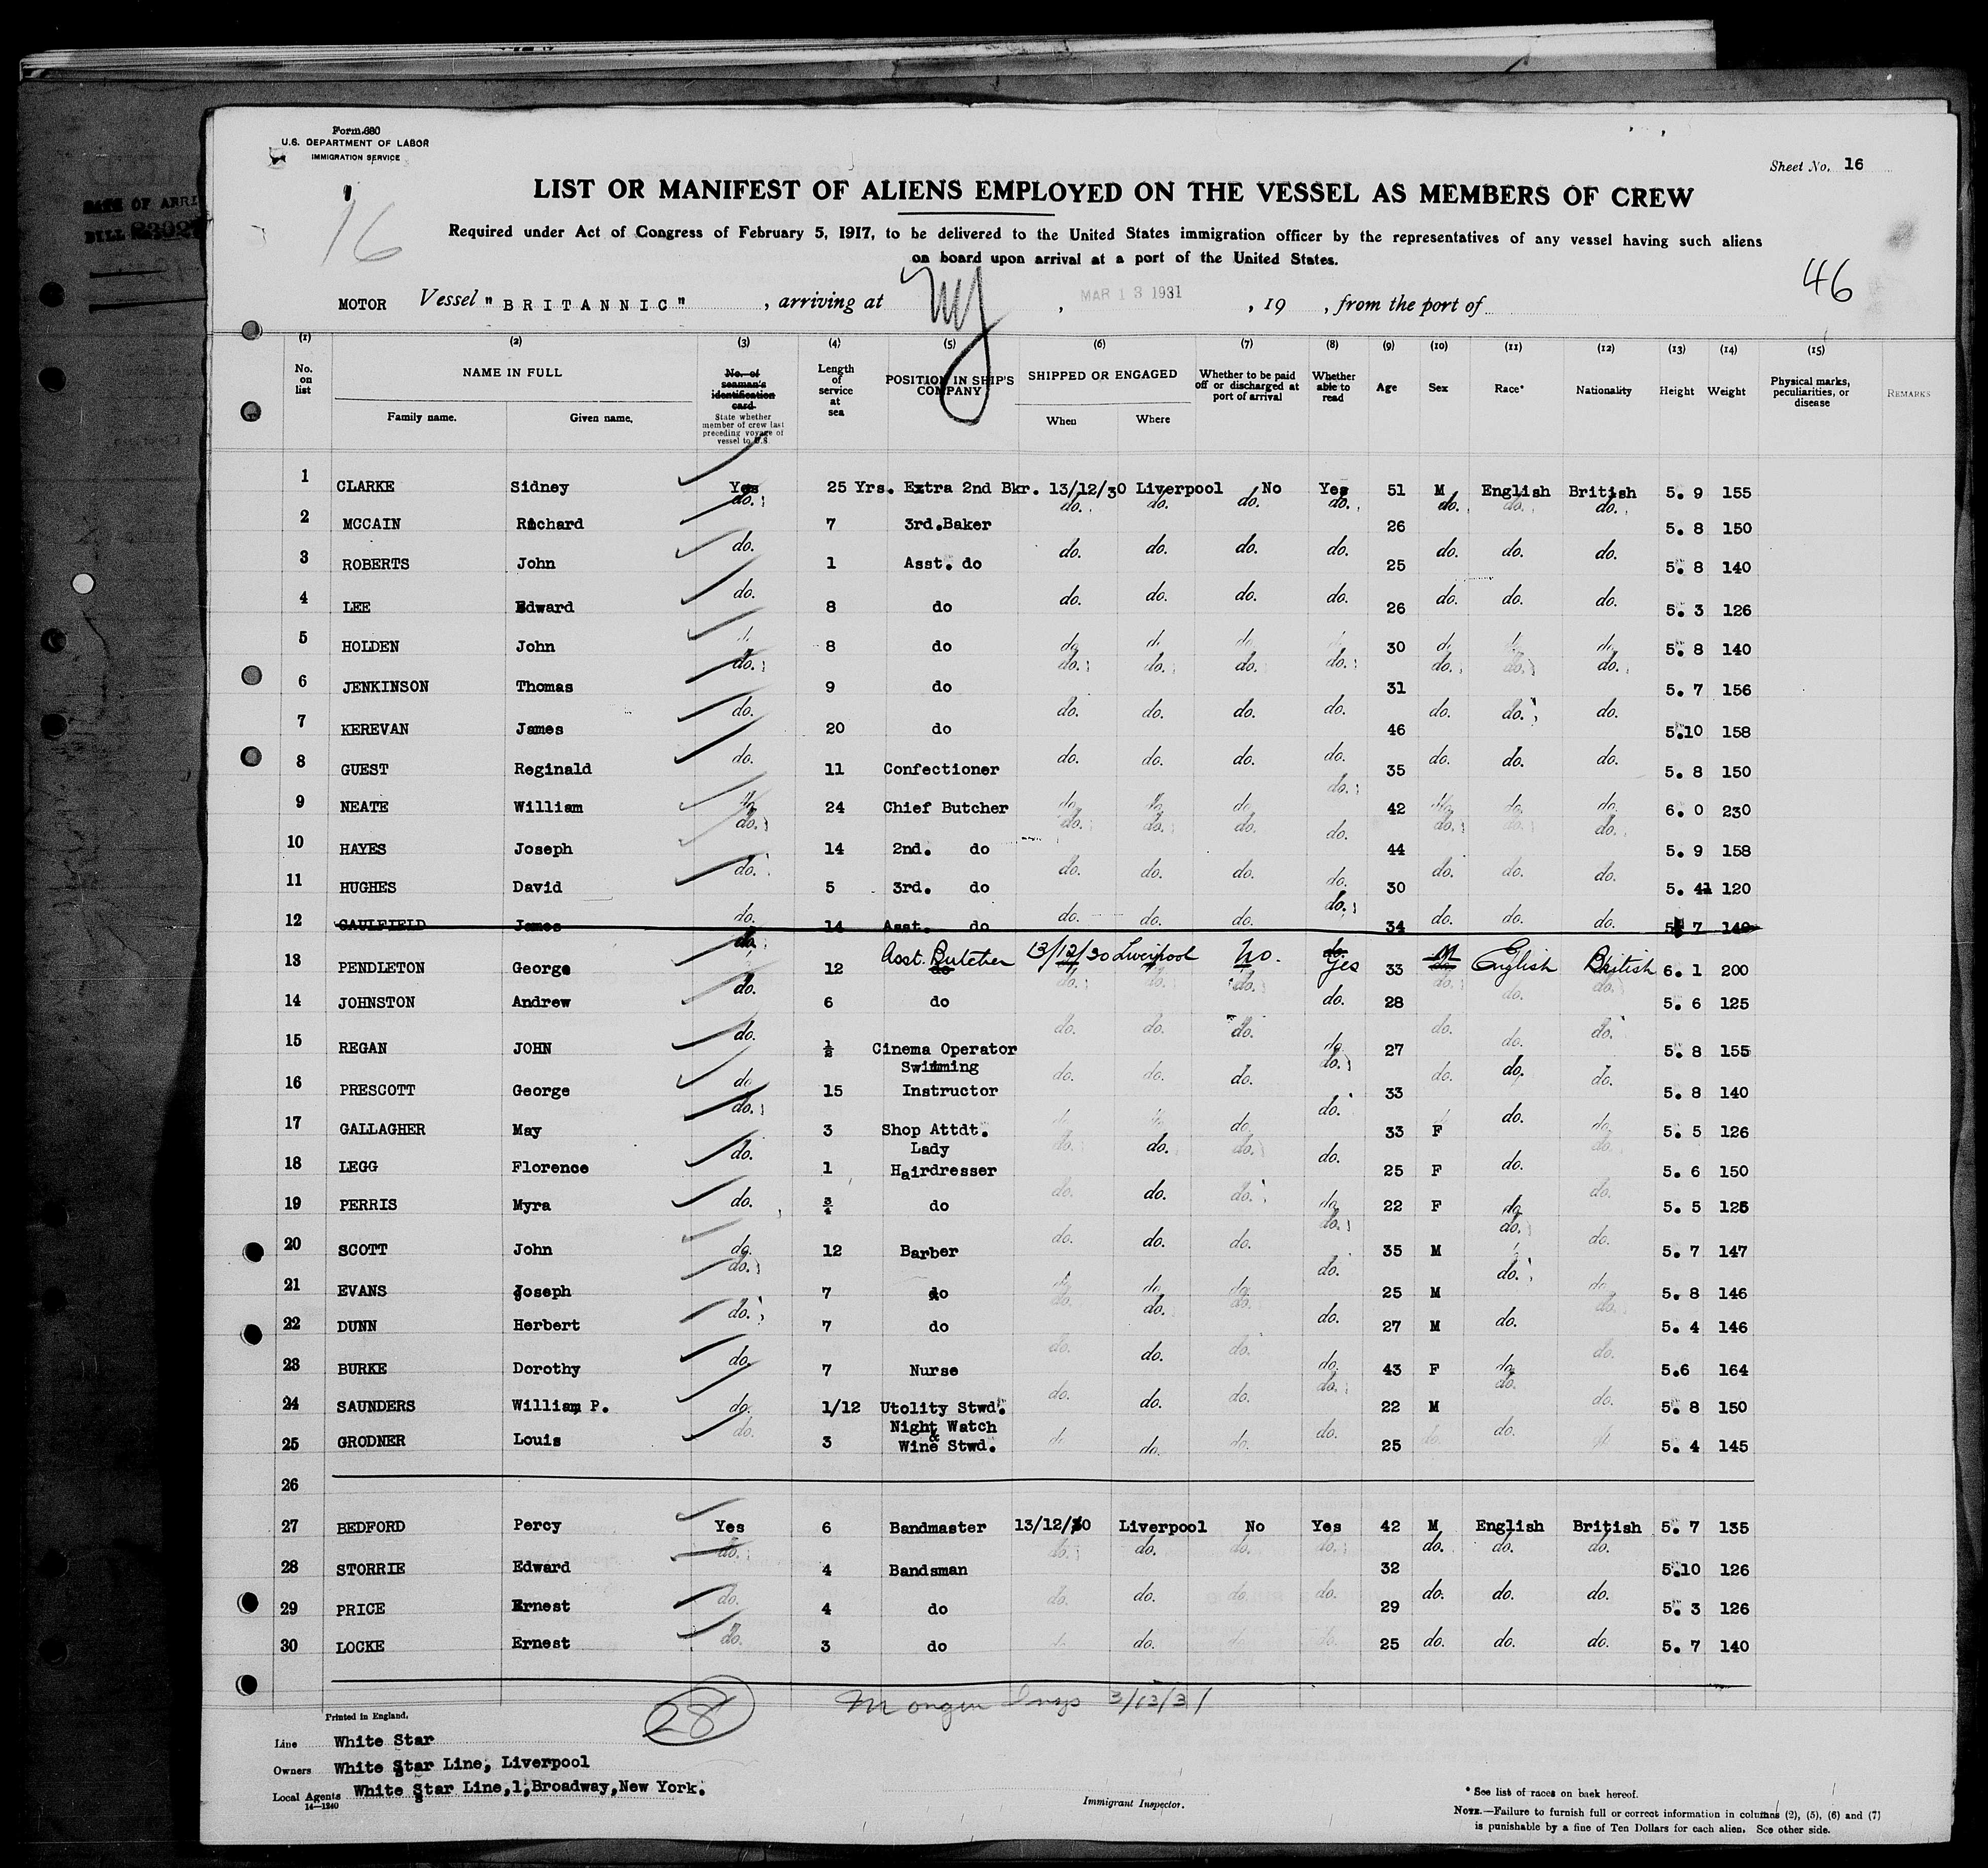 Form 680
U.S. DEPARTMENT OF LABOR
IMMIGRATION SERVICE
Sheet No. 16
16
LIST OR MANIFEST OF ALIENS EMPLOYED ON THE VESSEL AS MEMBERS OF CREW
Required under Act of Congress of February 5, 1917, to be delivered to the United States immigration officer by the representatives of any vessel having such aliens
on board upon arrival at a port of the United States.
46
MOTOR Vessel "BRITANNIC", arriving at NY, MAR 13 1931, 19 , from the port of
(1) (2) (3) (4) (5) (6) (7) (8) (9) (10) (11) (12) (13) (14) (15)
No. on list NAME IN FULL Family name. Given name. No. of seaman's identification card. State whether member of crew last preceding voyage of vessel to U.S. Length of service at sea POSITION IN SHIP'S COMPANY SHIPPED OR ENGAGED When Where Whether to be paid off or discharged at port of arrival Whether able to read Age Sex Race* Nationality Height Weight Physical marks, peculiarities, or disease REMARKS
1 CLARKE Sidney Yes 25 Yrs. Extra 2nd Bkr. 13/12/30 Liverpool No Yes 51 M English British 5. 9 155
2 MCCAIN Richard do. 7 3rd.Baker do. do. do. do. 26 do. do. do. 5. 8 150
3 ROBERTS John do. 1 Asst. do do. do. do. do. 25 do. do. do. 5. 8 140
4 LEE Edward do. 8 do do. do. do. do. 26 do. do. do. 5. 3 126
5 HOLDEN John 8 do do. do. do. 30 do. do. 5. 8 140
6 JENKINSON Thomas do. 9 do do. do. do. do. 31 do. do. do. 5. 7 156
7 KEREVAN James do. 20 do do. do. do. do. 46 do. do. do. 5.10 158
8 GUEST Reginald do. 11 Confectioner do. do. do. do. 35 do. do. do. 5. 8 150
9 NEATE William do. 24 Chief Butcher do. do. do. do. 42 do. do. do. 6. 0 230
10 HAYES Joseph do. 14 2nd. do do. do. do. do. 44 do. do. do. 5. 9 158
11 HUGHES David do. 5 3rd. do do. do. do. do. 30 do. do. do. 5. 120
12 CAULFIELD James do. 14 Asst. do do. do. do. do. 34 do. do. do. 5 7 140
13 PENDLETON George do. 12 do Asst. Butcher 13/12/30 Liverpool No. do. Yes 33 M English British 6. 1 200
14 JOHNSTON Andrew do. 6 do do. do. do. do. 28 do. do. do. 5. 6 125
15 REGAN JOHN do. ½ Cinema Operator do. do. do. do. 27 do. do. do. 5. 8 155
16 PRESCOTT George do. 15 Swimming Instructor do. do. do. do. 33 do. do. do. 5. 8 140
17 GALLAGHER May do. 3 Shop Attdt. do. do. 33 F do. do. 5. 5 126
18 LEGG Florence do. 1 Lady Hairdresser do. do. do. do. 25 F do. do. 5. 6 150
19 PERRIS Myra do. ¾ do do. do. do. do. 22 F do. do. 5. 5 126
20 SCOTT John do. 12 Barber do. do. do. do. 35 M do. do. 5. 7 147
21 EVANS Joseph do. 7 do do. do. do. 25 M do. do. 5. 8 146
22 DUNN Herbert do. 7 do do. do. do. do. 27 M do. do. 5. 4 146
23 BURKE Dorothy do. 7 Nurse do. do. do. do. 43 F do. do. 5.6 164
24 SAUNDERS William P. do. 1/12 Utolity Stwd. do. do. do. do. 22 M do. do. 5. 8 150
25 GRODNER Louis do. 3 Night Watch & Wine Stwd. do. do. do. 25 do. do. 5. 4 145
26
27 BEDFORD Percy Yes 6 Bandmaster 13/12/30 Liverpool No Yes 42 M English British 5. 7 135
28 STORRIE Edward do. 4 Bandsman do. do. do. do. 32 do. do. do. 5.10 126
29 PRICE Ernest do. 4 do do. do. do. do. 29 do. do. do. 5. 3 126
30 LOCKE Ernest do. 3 do do. 25 do. do. do. 5. 7 140
28 Insp 3/13/31
Printed in England.
Line White Star
Owners White Star Line, Liverpool
Local Agents White Star Line,1,Broadway,New York.
14—1240
Immigrant Inspector.
* See list of races on back hereof.
NOTE.—Failure to furnish full or correct information in columns (2), (5), (6) and (7)
is punishable by a fine of Ten Dollars for each alien. See other side.